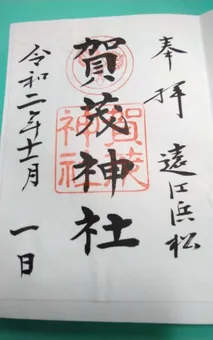 奉拝 遠江浜松
賀茂神社
賀茂神社
令和二年十一月 一日